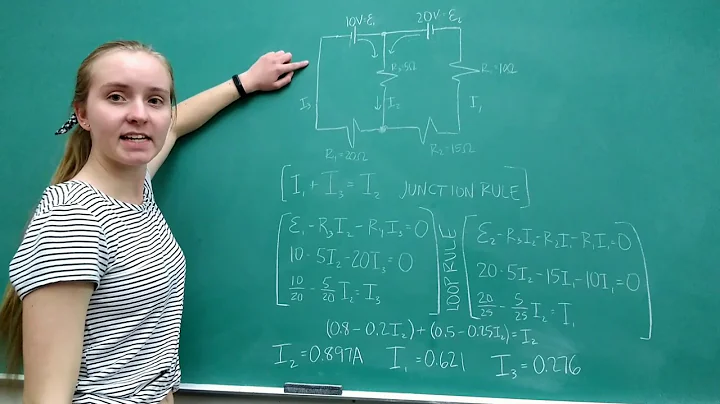 10V=Ɛ₁ 20V=Ɛ₂
R₃=5Ω R₁=10Ω
I₃ I₂ I₁
R₄=20Ω R₂=15Ω
[I₁ + I₃ = I₂ JUNCTION RULE]
Ɛ₁-R₃I₂-R₄I₃=0
10-5I₂-20I₃=0
10/20 - 5/20 I₂=I₃
LOOP RULE
Ɛ₂-R₃I₂-R₂I₁-R₁I₁=0
20-5I₂-15I₁-10I₁=0
20/25 - 5/25 I₂=I₁
(0.8-0.2I₂)+(0.5-0.25I₂)=I₂
I₂=0.897A I₁=0.621 I₃=0.276